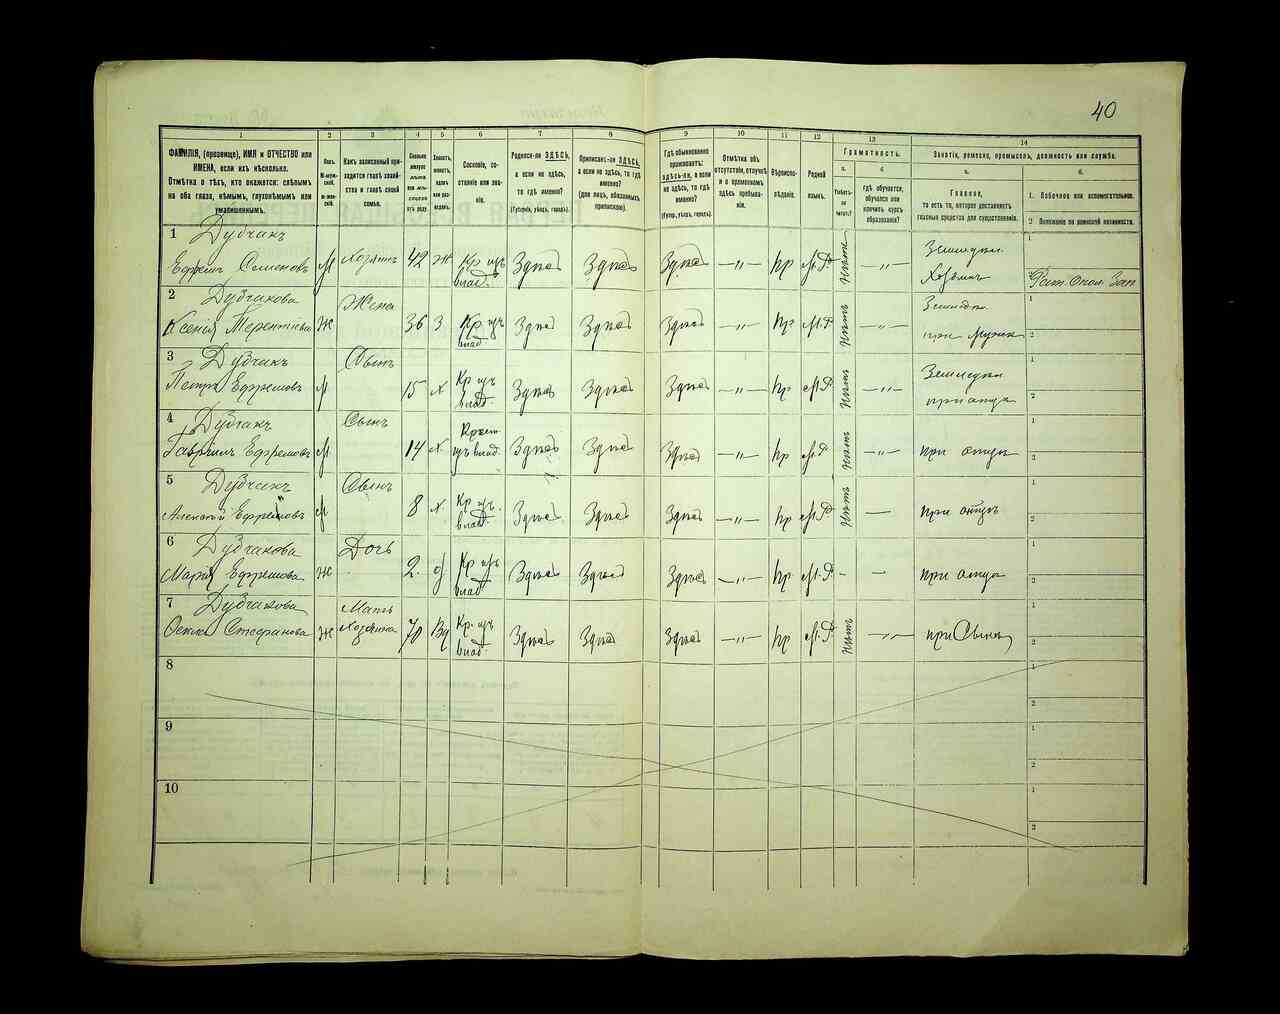 40
1
2
3
4
5
6
7
8
9
10
11
12
13
14
ФАМИЛІЯ, (прозвище), ИМЯ и ОТЧЕСТВО или
ИМЕНА, если ихъ нѣсколько.
Отмѣтка о тѣхъ, кто окажется: слѣпымъ
на оба глаза, нѣмымъ, глухонѣмымъ или
умалишеннымъ.
Полъ.
М-мужской.
Ж-женскій.
Какъ записанный при-
ходится главѣ хозяй-
ства и главѣ своей
семьи.
Сколько
минуло
лѣтъ
или мѣ-
сяцевъ
отъ роду
Холостъ,
женатъ,
вдовъ
или раз-
веденъ.
Сословіе, со-
стояніе или зва-
ніе.
Родился-ли ЗДѢСЬ,
а если не здѣсь,
то гдѣ именно?
(Губернія, уѣздъ, городъ).
Приписанъ-ли ЗДѢСЬ,
а если не здѣсь, то гдѣ
именно?
(для лицъ, обязанныхъ
припискою).
Гдѣ обыкновенно
проживаетъ:
здѣсь-ли, а если
не здѣсь, то гдѣ
именно?
(Губер., уѣздъ, городъ).
Отмѣтка объ
отсутствіи, отлучкѣ
и о временномъ
здѣсь пребыва-
ніи.
Вѣроиспо-
вѣданіе.
Родной
языкъ.
Грамотность.
а.
Умѣетъ-
ли
читать?
б.
гдѣ обучается,
обучался или
кончилъ курсъ
образованія?
Занятіе, ремесло, промыселъ, должность или служба.
а.
Главное,
то есть то, которое доставляетъ
главныя средства для существованія.
б.
1. Побочное или вспомогательное.
2. Положеніе по воинской повинности.
1 Дубчакъ
Ефремъ Семеновъ М Хозяинъ 42 Ж Кр изъ
влад. Здѣсь Здѣсь Здѣсь —„— Пр М.Р. —„— Земледел.
Хозяинъ
1
2
2 Дубчакова
Ксенія Терентіева Ж Жена 36 З Кр изъ
влад. Здѣсь Здѣсь Здѣсь —„— Пр М.Р. Нѣтъ —„— Земледел.
при Мужѣ
1
2
3 Дубчакъ
Петръ Ефремовъ М Сынъ 15 Х Кр изъ
влад. Здѣсь Здѣсь Здѣсь —„— Пр М.Р. Нѣтъ —„— Земледел.
при отцѣ
1
2
4 Дубчакъ
Гаврiилъ Ефремовъ М Сынъ 14 Х Крест
изъ влад. Здѣсь Здѣсь Здѣсь —„— Пр М.Р. Нѣтъ —„— при отцѣ
1
2
5 Дубчакъ
Алексѣй Ефремовъ М Сынъ 8 Х Кр изъ
влад. Здѣсь Здѣсь Здѣсь —„— Пр М.Р. Нѣтъ — при отцѣ
1
2
6 Дубчакова
Марія Ефремова Ж Дочь 2 Кр изъ
влад Здѣсь Здѣсь Здѣсь —„— Пр М.Р. - — при отцѣ
1
2
7 Дубчакова
Стефанова Ж Мать
Хозяина 70 Вд Кр. изъ
влад. Здѣсь Здѣсь Здѣсь —„— Пр М.Р. Нѣтъ —„— при Сынѣ
1
2
8
1
2
9
1
2
10
1
2